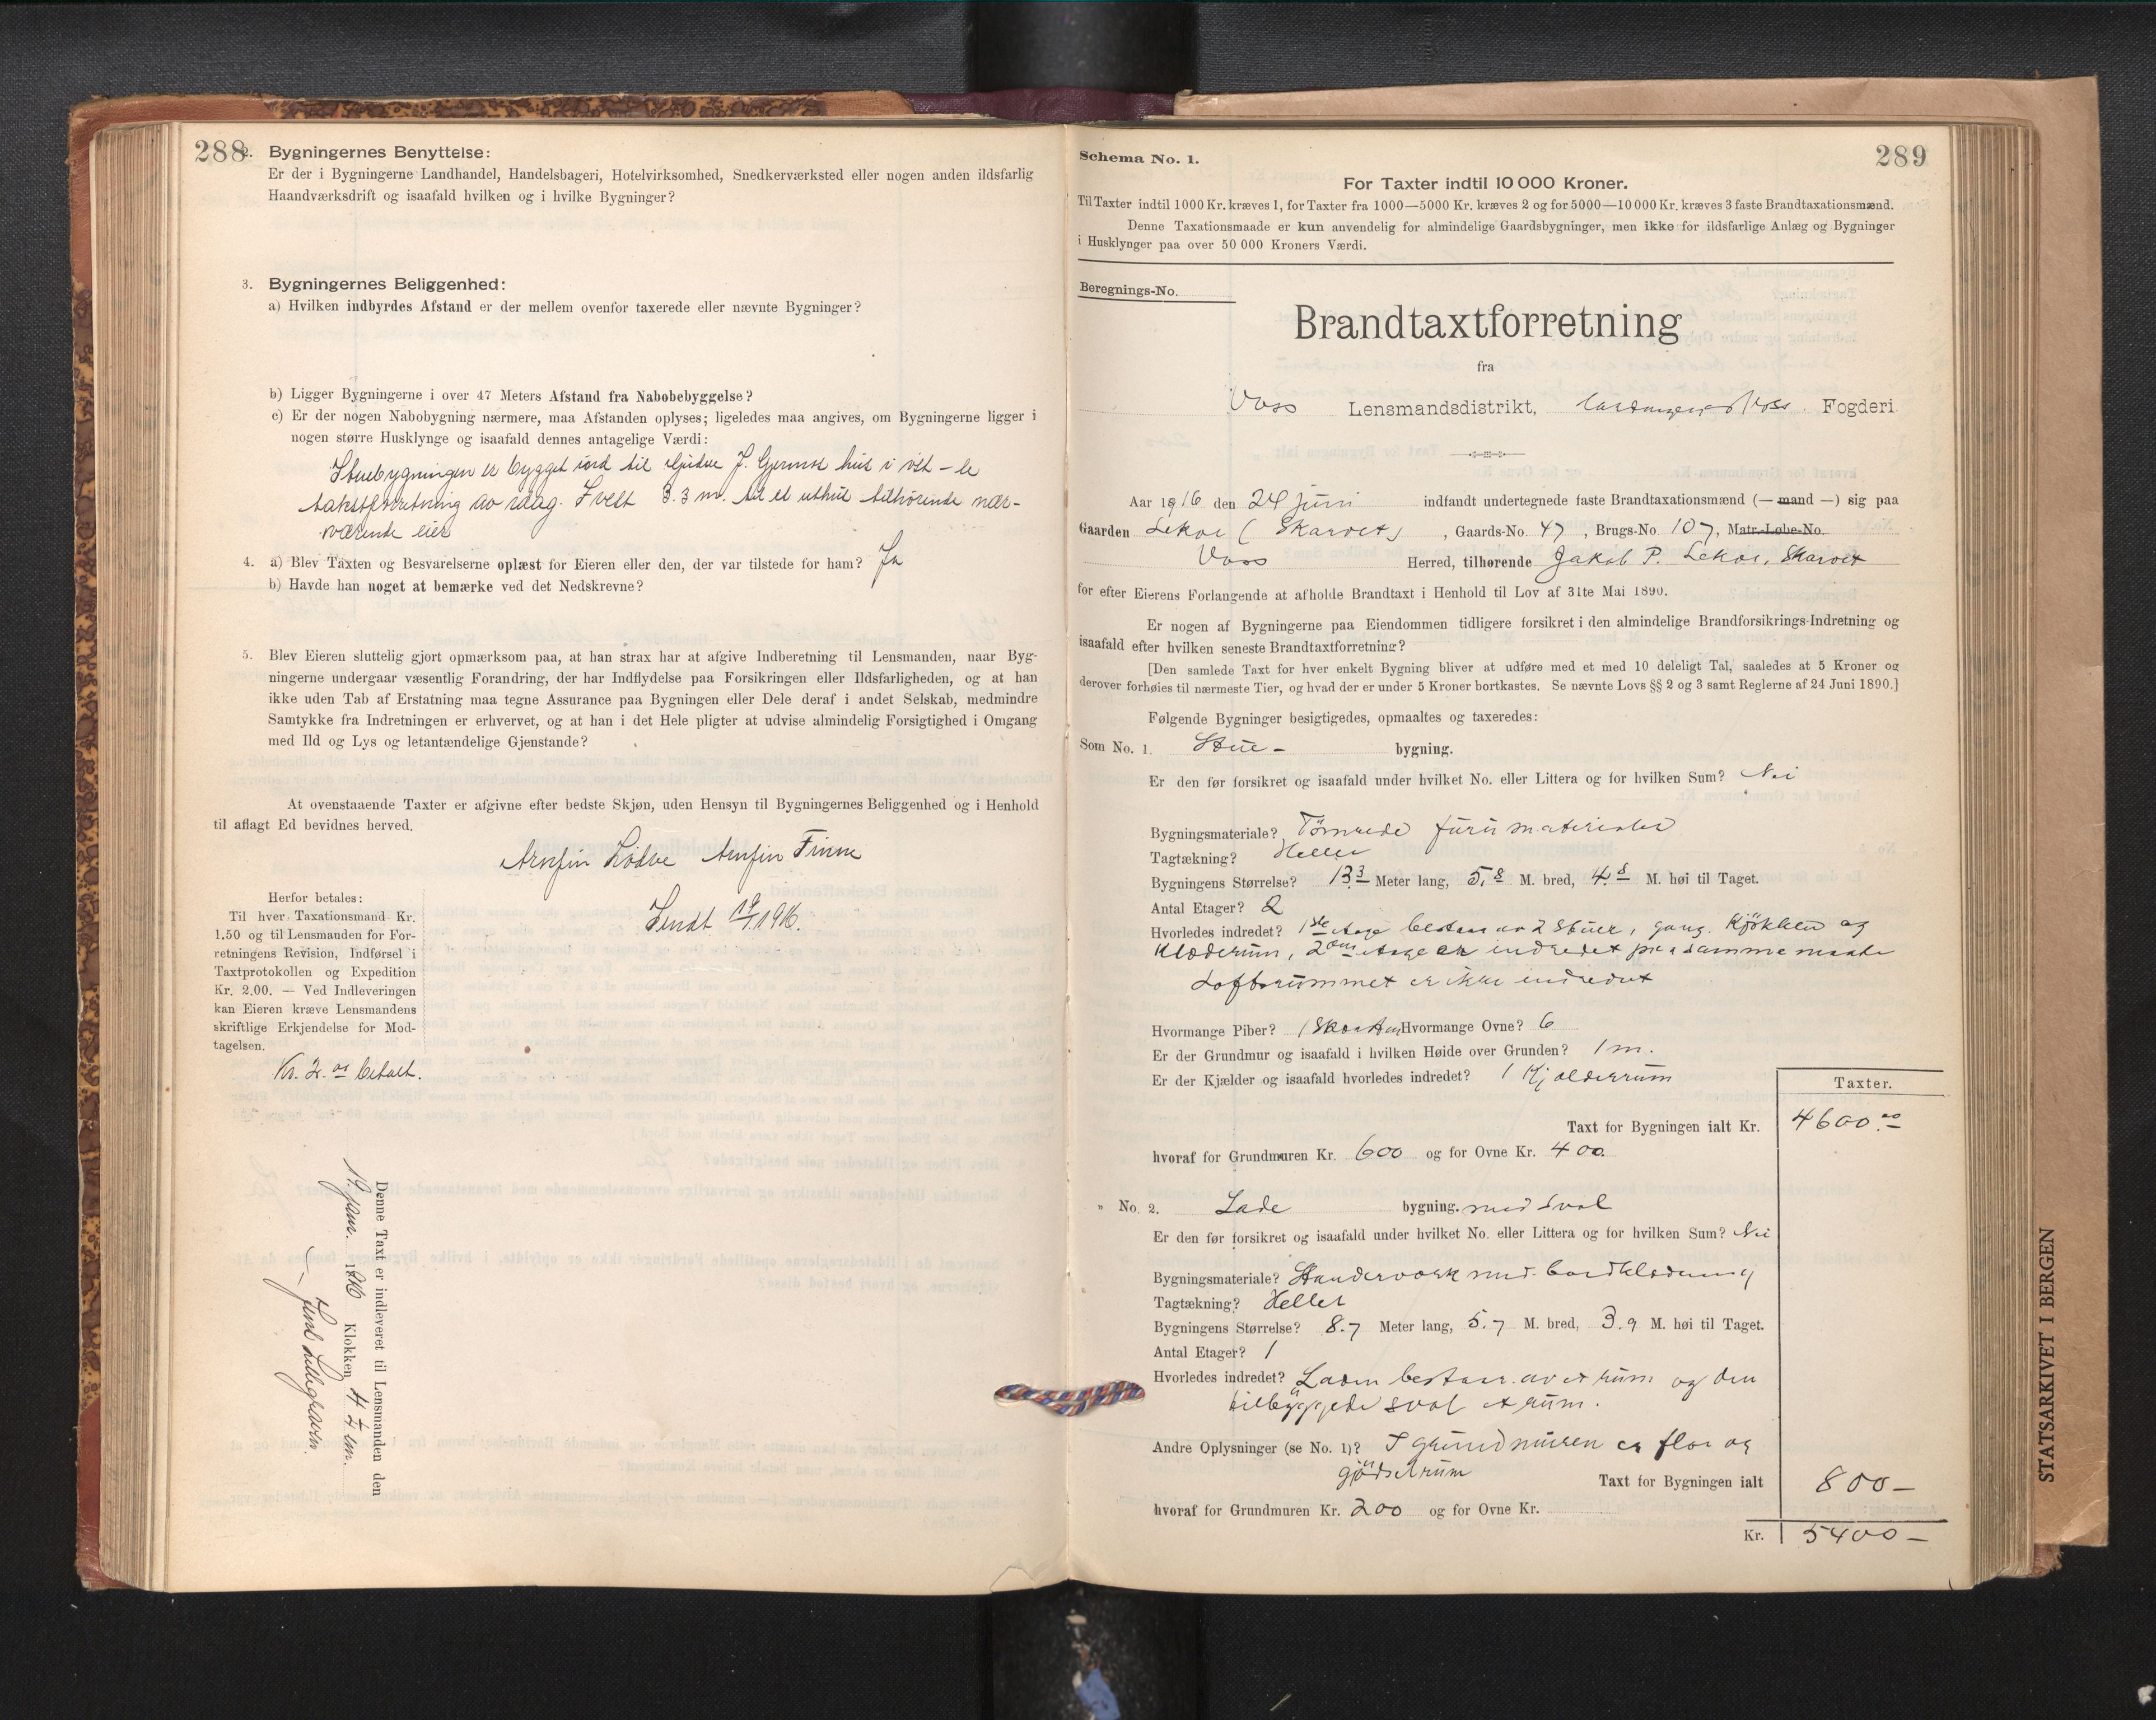 288
2. Bygningernes Benyttelse:
Er der i Bygningerne Landhandel, Handelsbageri, Hotelvirksomhed, Snedkerværksted eller nogen anden ildsfarlig
Haandværksdrift og isaafald hvilken og i hvilke Bygninger?
3. Bygningernes Beliggenhed:
a) Hvilken indbyrdes Afstand er der mellem ovenfor taxerede eller nævnte Bygninger?
b) Ligger Bygningerne i over 47 Meters Afstand fra Nabobebyggelse?
c) Er der nogen Nabobygning nærmere, maa Afstanden oplyses; ligeledes maa angives, om Bygningerne ligger i
nogen større Husklynge og isaafald dennes antagelige Værdi:
Stuebygningen er bygget ind til hus i
takstforretning av idag. I vest 3.3 m. til et uthus tilhørende nær-
værende eier
4. a) Blev Taxten og Besvarelserne oplæst for Eieren eller den, der var tilstede for ham? Ja
b) Havde han noget at bemærke ved det Nedskrevne?
5. Blev Eieren sluttelig gjort opmærksom paa, at han strax har at afgive Indberetning til Lensmanden, naar Byg-
ningerne undergaar væsentlig Forandring, der har Indflydelse paa Forsikringen eller Ildsfarligheden, og at han
ikke uden Tab af Erstatning maa tegne Assurance paa Bygningen eller Dele deraf i andet Selskab, medmindre
Samtykke fra Indretningen er erhvervet, og at han i det Hele pligter at udvise almindelig Forsigtighed i Omgang
med Ild og Lys og letantændelige Gjenstande?
At ovenstaaende Taxter er afgivne efter bedste Skjøn, uden Hensyn til Bygningernes Beliggenhed og i Henhold
til aflagt Ed bevidnes herved.
Arnfin Lödve Arnfin Finne
Sendt 19/7 1916.
Herfor betales:
Til hver Taxationsmand Kr.
1.50 og til Lensmanden for For-
retningens Revision, Indførsel i
Taxtprotokollen og Expedition
Kr. 2.00. — Ved Indleveringen
kan Eieren kræve Lensmandens
skriftlige Erkjendelse for Mod-
tagelsen.
Kr. 2.00 betalt.
Denne Taxt er indleveret til Lensmanden den
19 1916 Klokken 4 em.
289
Schema No. 1.
For Taxter indtil 10 000 Kroner.
Til Taxter indtil 1000 Kr. kræves 1, for Taxter fra 1000—5000 Kr. kræves 2 og for 5000—10 000 Kr. kræves 3 faste Brandtaxationsmænd.
Denne Taxationsmaade er kun anvendelig for almindelige Gaardsbygninger, men ikke for ildsfarlige Anlæg og Bygninger
i Husklynger paa over 50 000 Kroners Værdi.
Beregnings-No.
Brandtaxtforretning
fra
Voss Lensmandsdistrikt, Hardanger og Voss Fogderi
Aar 1916 den 24 juni indfandt undertegnede faste Brandtaxationsmænd (— mand —) sig paa
Gaarden Lekve (Skarvet), Gaards-No. 47, Brugs-No 107, Matr.-Løbe-No.
Voss Herred, tilhørende Jakob P. Lekve, Skarvet
for efter Eierens Forlangende at afholde Brandtaxt i Henhold til Lov af 31te Mai 1890.
Er nogen af Bygningerne paa Eiendommen tidligere forsikret i den almindelige Brandforsikrings-Indretning og
isaafald efter hvilken seneste Brandtaxtforretning?
[Den samlede Taxt for hver enkelt Bygning bliver at udføre med et med 10 deleligt Tal, saaledes at 5 Kroner og
derover forhøies til nærmeste Tier, og hvad der er under 5 Kroner bortkastes. Se nævnte Lovs §§ 2 og 3 samt Reglerne af 24 Juni 1890.]
Følgende Bygninger besigtigedes, opmaaltes og taxeredes:
Som No. 1. Stue- bygning.
Er den før forsikret og isaafald under hvilket No. eller Littera og for hvilken Sum? Nei
Bygningsmateriale? Tömrede furumaterialer
Tagtækning? Heller
Bygningens Størrelse? 13.3 Meter lang, 5.8 M. bred, 4.8 M. høi til Taget.
Antal Etager? 2
Hvorledes indredet? 1ste etage bestaar av 2 stuer, gang, Kjökken og
Klæderum, 2den etage er indredet paa samme maate
Loftsrummet er ikke indredet
Hvormange Piber? 1 Skorsten Hvormange Ovne? 6
Er der Grundmur og isaafald i hvilken Høide over Grunden? 1 m.
Er der Kjælder og isaafald hvorledes indredet? 1 Kjælderrum
Taxter.
Taxt for Bygningen ialt Kr. 4600.00
hvoraf for Grundmuren Kr. 600 og for Ovne Kr. 400.
" No. 2. Lade bygning. med sval
Er den før forsikret og isaafald under hvilket No. eller Littera og for hvilken Sum? Nei
Bygningsmateriale? Standerværk med bordklædning
Tagtækning? Heller
Bygningens Størrelse? 8.7 Meter lang, 5.7 M. bred, 3.9 M. høi til Taget.
Antal Etager? 1
Hvorledes indredet? Laden bestaar av et rum og den
tilbyggede sval et rum.
Andre Oplysninger (se No. 1)? I grundmuren er flor og
gjödselrum Taxt for Bygningen ialt 800 –
hvoraf for Grundmuren Kr. 200 og for Ovne Kr.
Kr. 5400 –
STATSARKIVET I BERGEN